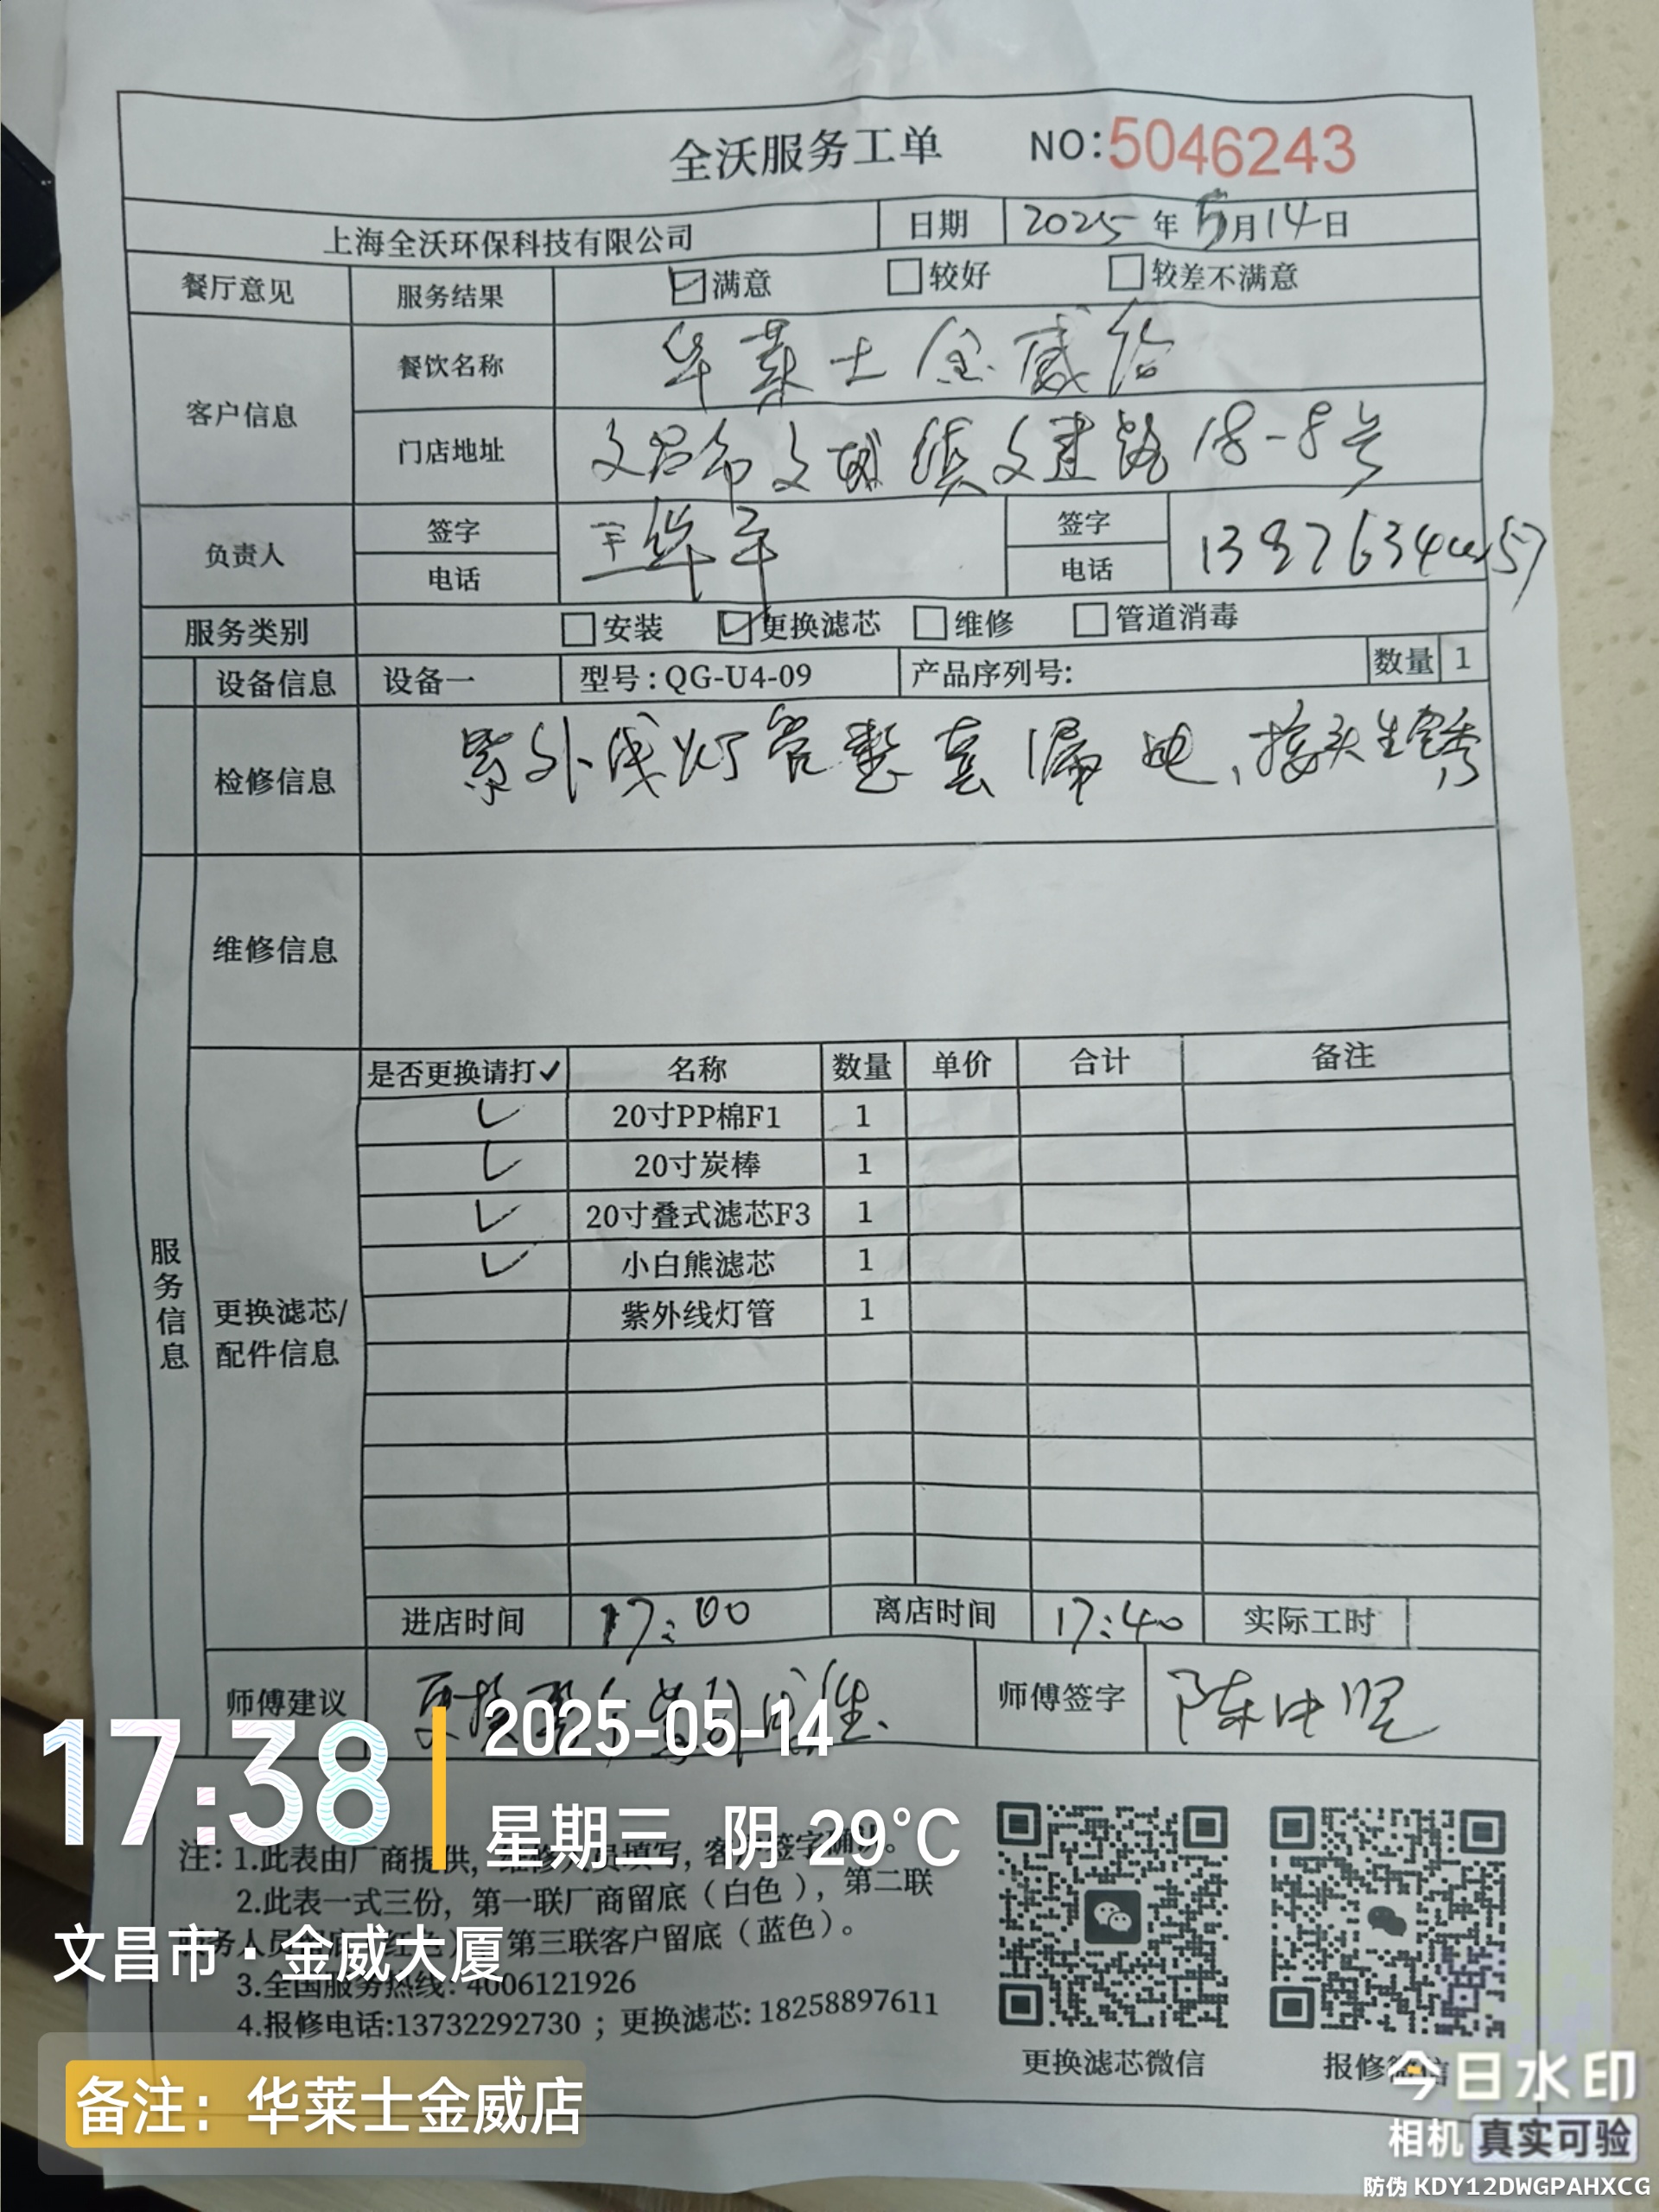 全沃服务工单 NO:5046243
上海全沃环保科技有限公司 日期 2025年5月14日
餐厅意见 服务结果 满意 较好 较差不满意
客户信息 餐饮名称 华莱士金威店
门店地址 文昌市文城镇文建路18-8号
负责人 签字 王华平 签字
电话 电话
服务类别 安装 更换滤芯 维修 管道消毒
设备信息 设备一 型号:QG-U4-09 产品序列号: 数量 1
检修信息 紫外线灯管整套漏电、接头生锈
维修信息
服务信息
更换滤芯/
配件信息
是否更换请打✓ 名称 数量 单价 合计 备注
✓ 20寸PP棉F1 1
✓ 20寸炭棒 1
✓ 20寸叠式滤芯F3 1
✓ 小白熊滤芯 1
紫外线灯管 1
进店时间 17:00 离店时间 17:40 实际工时
师傅建议 更换 师傅签字
17:38
2025-05-14
星期三 阴 29°C
注: 1.此表由厂商提供, 填写, 客 签字确认。
2.此表一式三份, 第一联厂商留底(白色), 第二联
务人员 第三联客户留底(蓝色)。
文昌市·金威大厦
3.全国服务热线: 4006121926
4.报修电话:13732292730 ; 更换滤芯: 18258897611
更换滤芯微信
报修微信
备注: 华莱士金威店
今日水印
相机 真实可验
防伪 KDY12DWGPAHXCG